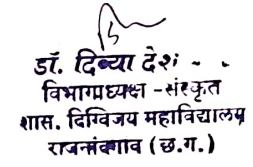 डॉ. दिव्या देश
विभागाध्यक्ष - संस्कृत
शास. दिग्विजय महाविद्यालय
राजनांदगांव (छ.ग.)